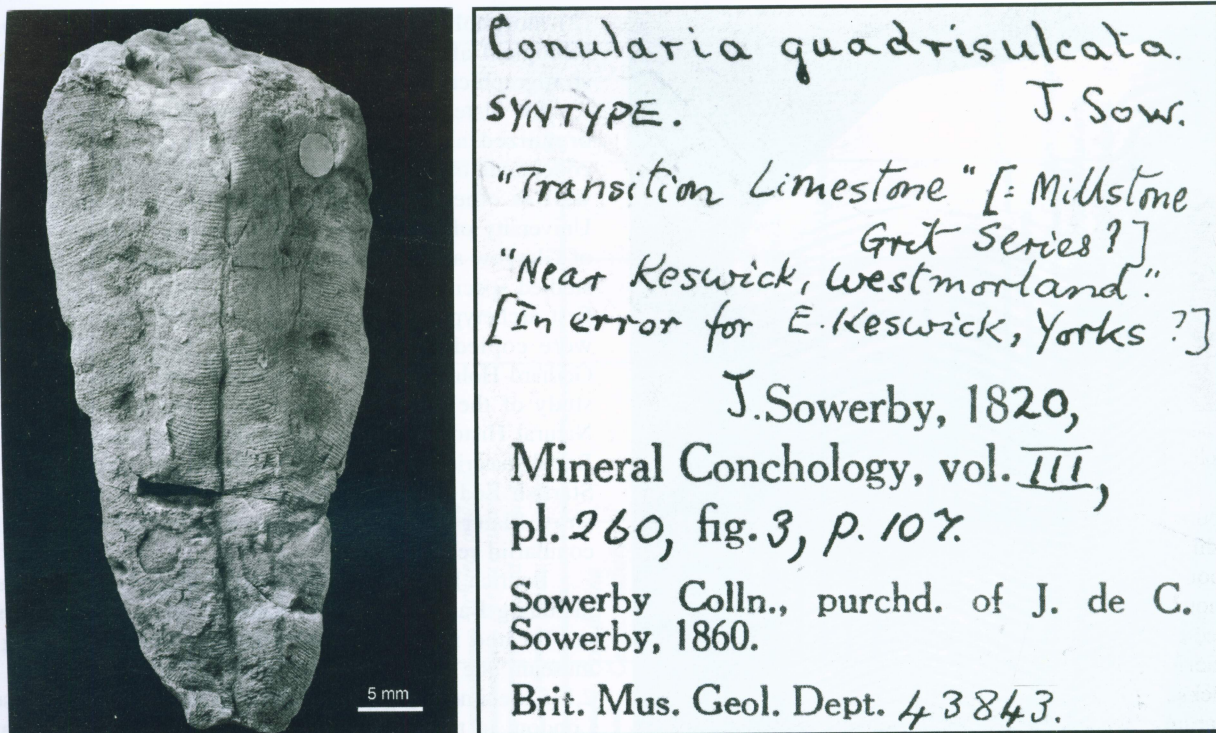 5 mm
Conularia quadrisulcata.
SYNTYPE. J. Sow.
"Transition Limestone" [= Millstone
Grit Series?]
"Near Keswick, Westmorland".
[In error for E. Keswick, Yorks ?]
J. Sowerby, 1820,
Mineral Conchology, vol. III,
pl. 260, fig. 3, p. 107.
Sowerby Colln., purchd. of J. de C.
Sowerby, 1860.
Brit. Mus. Geol. Dept. 43843.